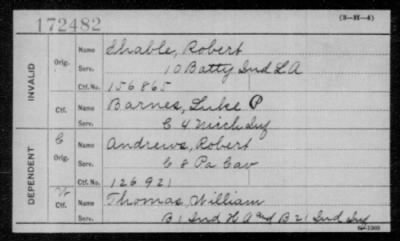 172482 (3-H-4)
INVALID
Orig. Name Shable, Robert
Serv. 10 Batty Ind L A
Ctf. No. 156865
Ctf. Name Barnes, Luke P
Serv. C 4 Mich Inf
DEPENDENT
C Orig. Name Andrews, Robert
Serv. C 8 Pa Cav
Ctf. No. 126921
W Ctf. Name Thomas, William
Serv. B 1 Ind H A and B 21 Ind Inf